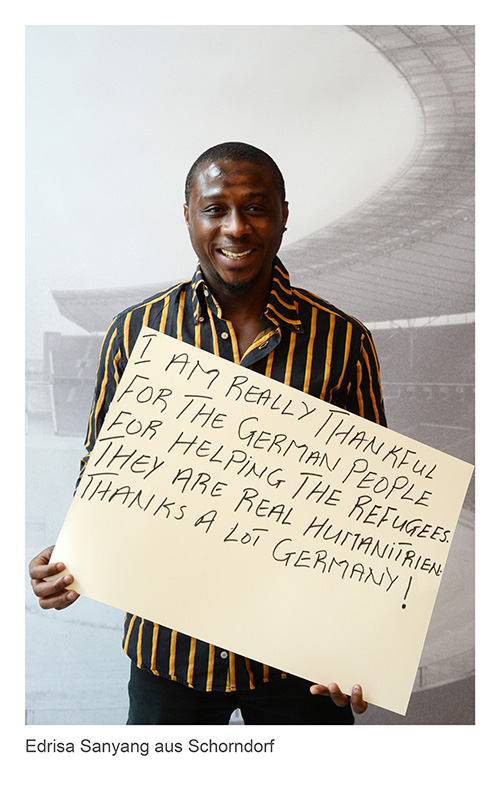 I AM REALLY THANKFUL
FOR THE GERMAN PEOPLE
FOR HELPING THE REFUGEES.
THEY ARE REAL HUMANITRIEN.
THANKS A LOT GERMANY!
Edrisa Sanyang aus Schorndorf